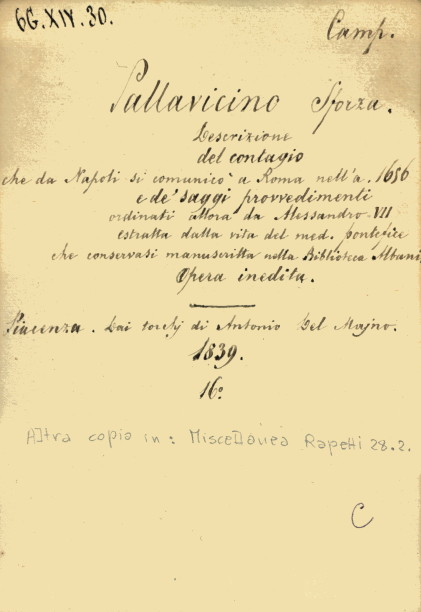 6G.XIV.30.
Camp.
Pallavicino Sforza.
Descrizione
del contagio
che da Napoli si comunicò a Roma nell'a. 1656
e de' saggi provvedimenti
ordinati allora da Alessandro VII
estratta dalla vita del med. pontefice
che conservasi manuscritta nella Biblioteca Albani
Opera inedita.
Piacenza. Dai torchj di Antonio Del Majno.
1839.
16°
Altra copia in: Miscellanea Rapetti 28.2.
C